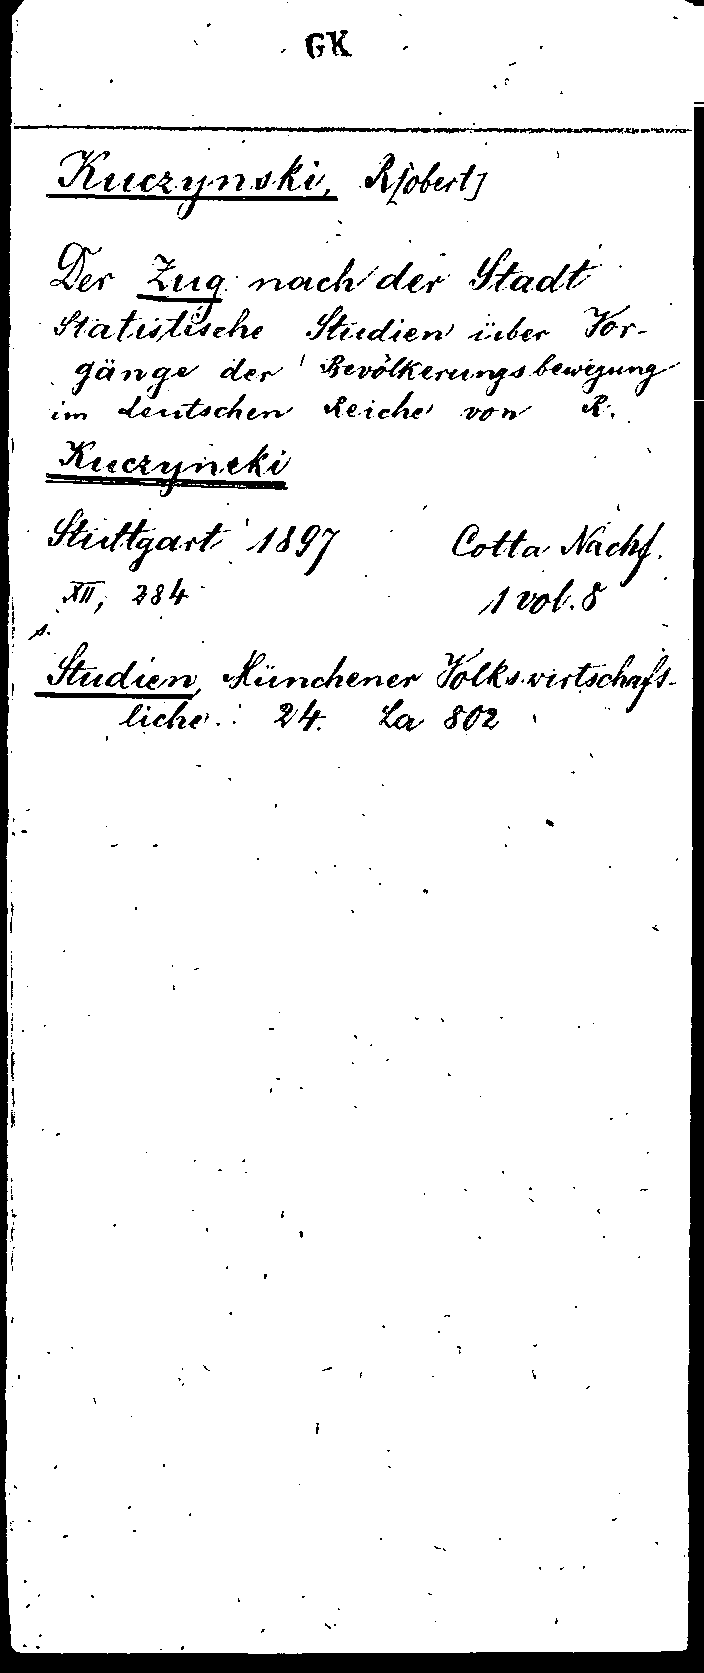 GK
Kuczynski, R[obert]
Der Zug nach der Stadt
Statistische Studien über Vor-
gänge der Bevölkerungsbewegung
im deutschen Reiche von R.
Kuczynski
Stuttgart 1897 Cotta Nachf.
XII, 284 1 vol. 8
s.
Studien, Münchener Volkswirtschafs-
liche. 24. La 802